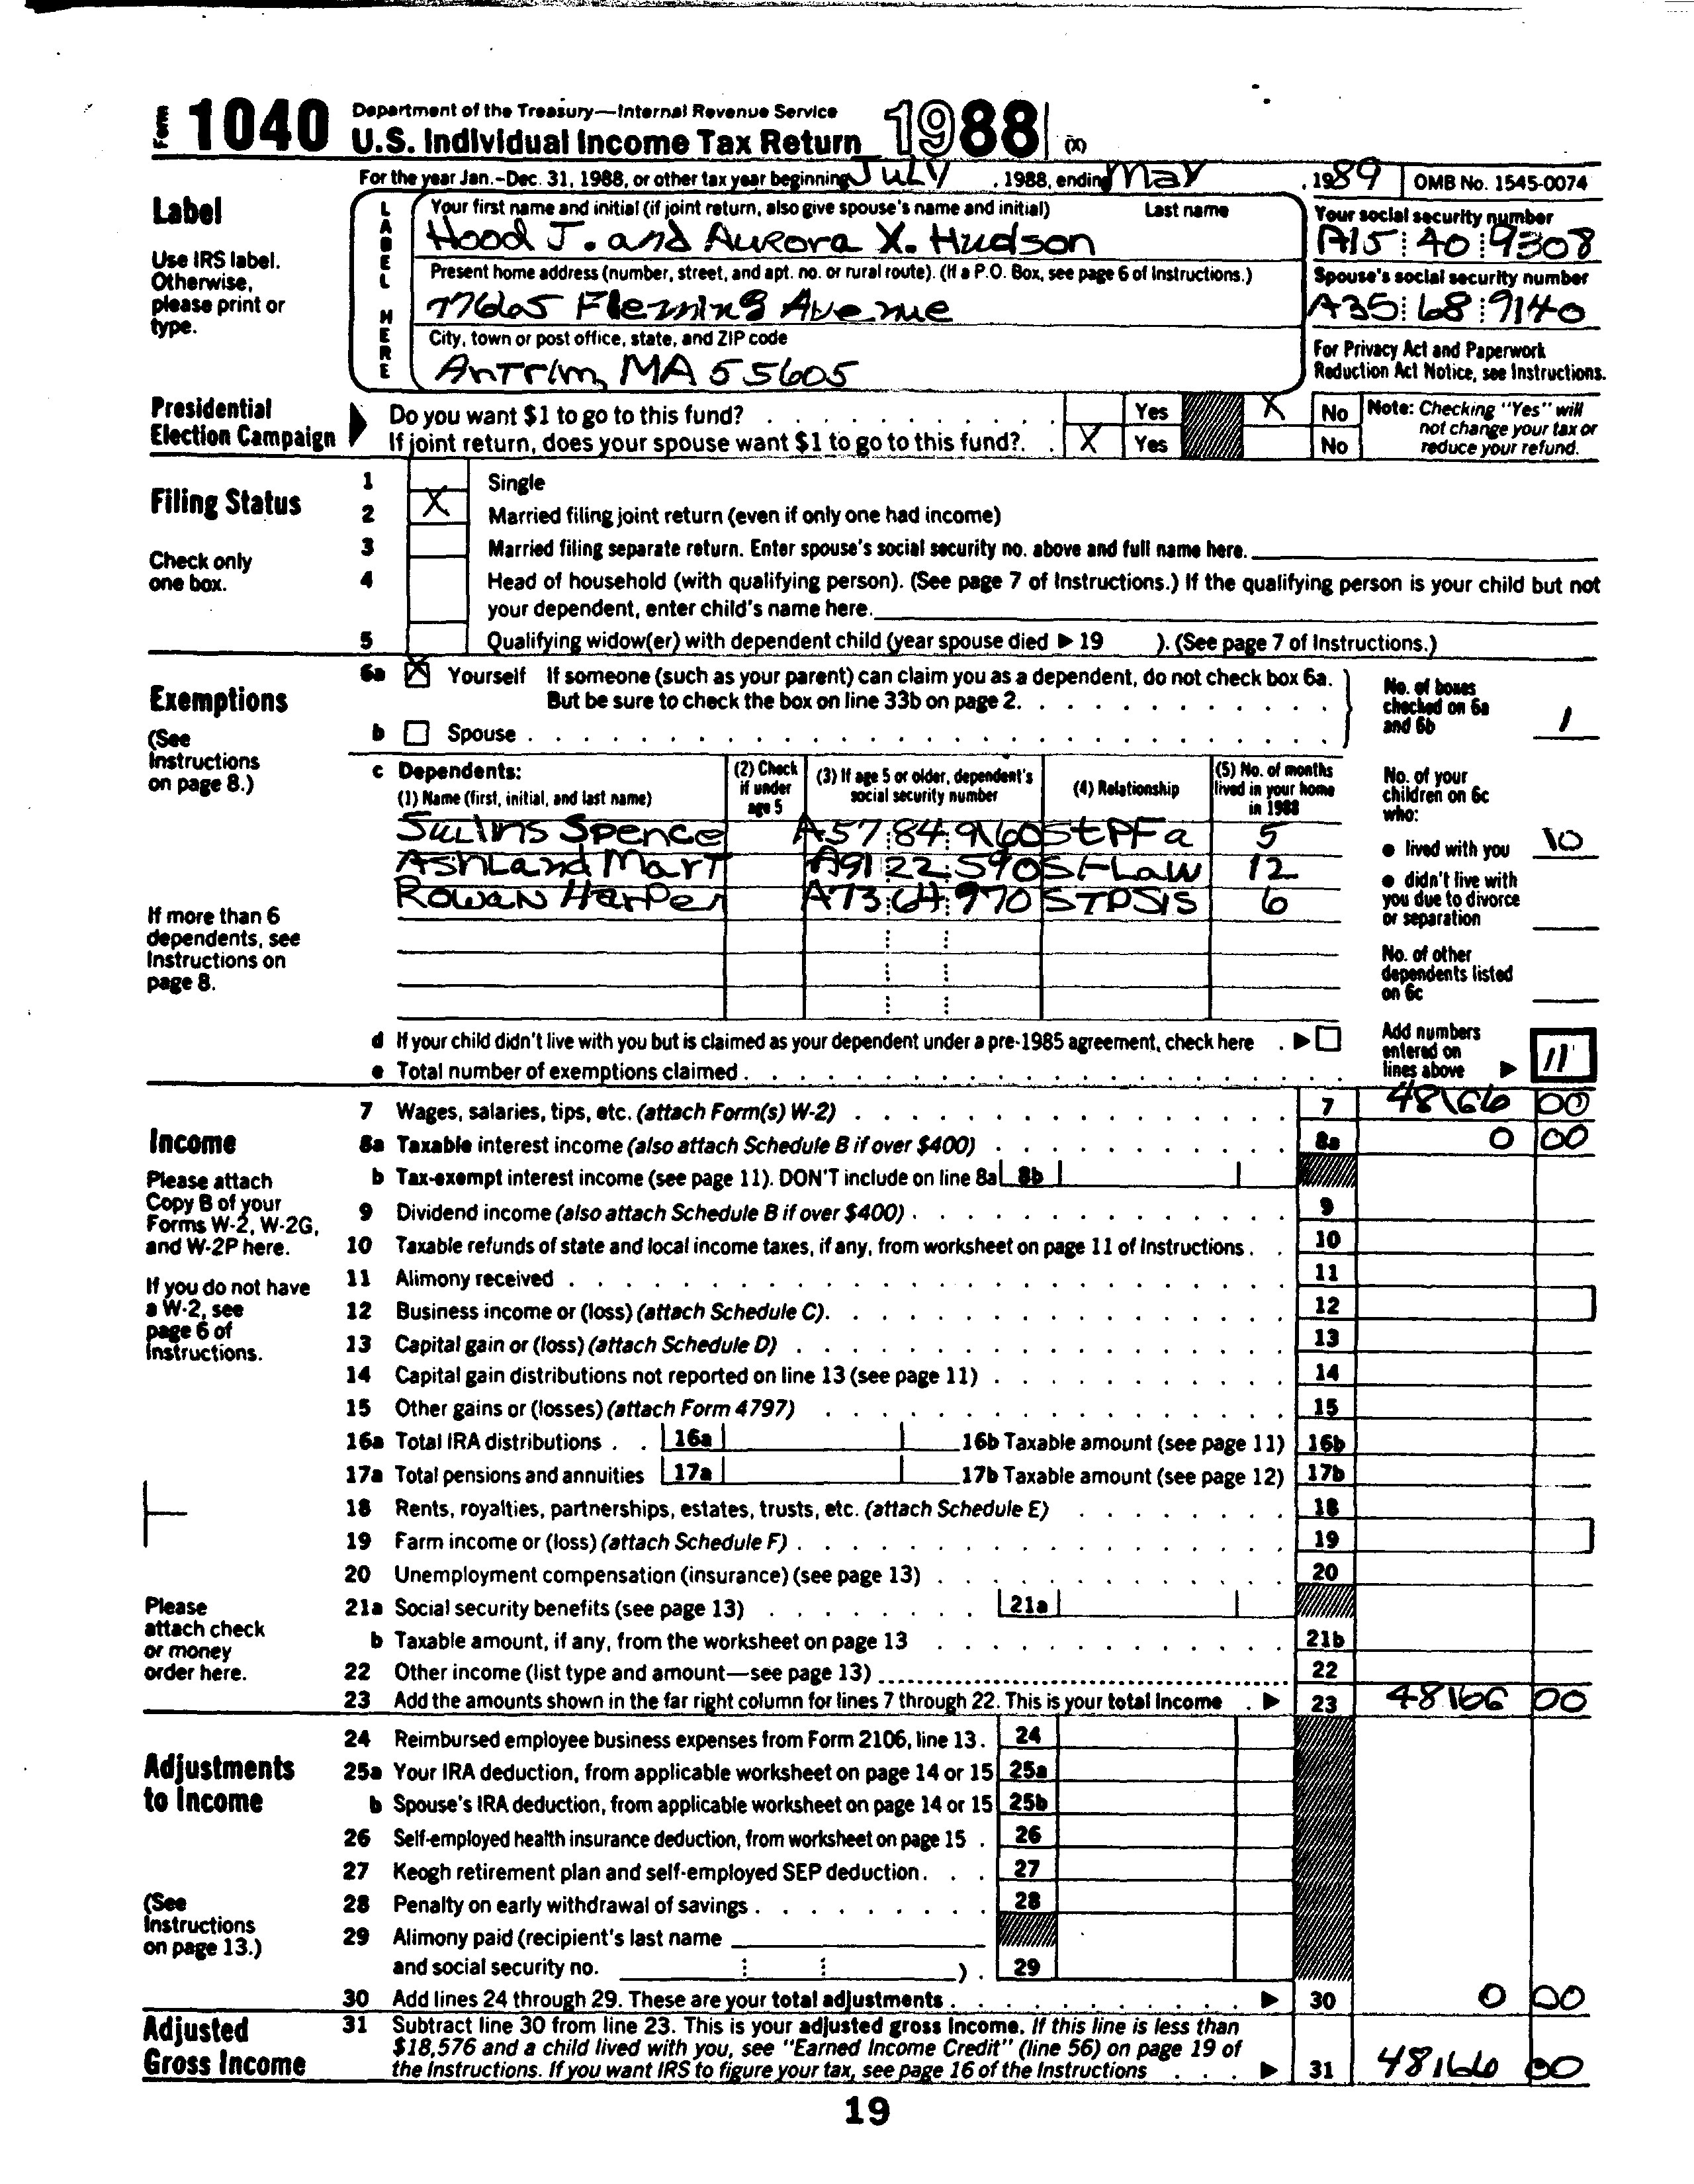 Form 1040 Department of the Treasury—Internal Revenue Service
U.S. Individual Income Tax Return 1988 (X)
For the year Jan.-Dec. 31, 1988, or other tax year beginning July , 1988, ending May , 1989 OMB No. 1545-0074
Label
Use IRS label.
Otherwise,
please print or
type.
LABEL HERE
Your first name and initial (if joint return, also give spouse's name and initial) Last name
Hood J. and Aurora X. Hudson
Your social security number
A15 40 9308
Present home address (number, street, and apt. no. or rural route). (If a P.O. Box, see page 6 of Instructions.)
77665 Fleming Avenue
Spouse's social security number
A35 68 9140
City, town or post office, state, and ZIP code
Antrim, MA 55605
For Privacy Act and Paperwork
Reduction Act Notice, see Instructions.
Presidential
Election Campaign
Do you want $1 to go to this fund? Yes X No
If joint return, does your spouse want $1 to go to this fund? X Yes No
Note: Checking "Yes" will
not change your tax or
reduce your refund.
Filing Status
Check only
one box.
1 Single
2 X Married filing joint return (even if only one had income)
3 Married filing separate return. Enter spouse's social security no. above and full name here.
4 Head of household (with qualifying person). (See page 7 of Instructions.) If the qualifying person is your child but not
your dependent, enter child's name here.
5 Qualifying widow(er) with dependent child (year spouse died ▶ 19 ). (See page 7 of Instructions.)
Exemptions
(See
Instructions
on page 8.)
6a X Yourself If someone (such as your parent) can claim you as a dependent, do not check box 6a.
But be sure to check the box on line 33b on page 2.
b Spouse
No. of boxes
checked on 6a
and 6b 1
c Dependents:
(1) Name (first, initial, and last name)
(2) Check
if under
age 5
(3) If age 5 or older, dependent's
social security number
(4) Relationship
(5) No. of months
lived in your home
in 1988
Sullins Spence A57 84 9160 StPFa 5
Ashland Mart A91 22 590 St-Law 12
Rowan Harper A73 64 970 STPSIS 6
If more than 6
dependents, see
Instructions on
page 8.
No. of your
children on 6c
who:
● lived with you 10
● didn't live with
you due to divorce
or separation
No. of other
dependents listed
on 6c
d If your child didn't live with you but is claimed as your dependent under a pre-1985 agreement, check here ▶
e Total number of exemptions claimed
Add numbers
entered on
lines above ▶ 11
Income
Please attach
Copy B of your
Forms W-2, W-2G,
and W-2P here.
If you do not have
a W-2, see
page 6 of
Instructions.
Please
attach check
or money
order here.
7 Wages, salaries, tips, etc. (attach Form(s) W-2) 7 48166 00
8a Taxable interest income (also attach Schedule B if over $400) 8a 0 00
b Tax-exempt interest income (see page 11). DON'T include on line 8a 8b
9 Dividend income (also attach Schedule B if over $400) 9
10 Taxable refunds of state and local income taxes, if any, from worksheet on page 11 of Instructions 10
11 Alimony received 11
12 Business income or (loss) (attach Schedule C) 12
13 Capital gain or (loss) (attach Schedule D) 13
14 Capital gain distributions not reported on line 13 (see page 11) 14
15 Other gains or (losses) (attach Form 4797) 15
16a Total IRA distributions 16a 16b Taxable amount (see page 11) 16b
17a Total pensions and annuities 17a 17b Taxable amount (see page 12) 17b
18 Rents, royalties, partnerships, estates, trusts, etc. (attach Schedule E) 18
19 Farm income or (loss) (attach Schedule F) 19
20 Unemployment compensation (insurance) (see page 13) 20
21a Social security benefits (see page 13) 21a
b Taxable amount, if any, from the worksheet on page 13 21b
22 Other income (list type and amount—see page 13) 22
23 Add the amounts shown in the far right column for lines 7 through 22. This is your total income ▶ 23 48166 00
Adjustments
to Income
(See
Instructions
on page 13.)
24 Reimbursed employee business expenses from Form 2106, line 13. 24
25a Your IRA deduction, from applicable worksheet on page 14 or 15 25a
b Spouse's IRA deduction, from applicable worksheet on page 14 or 15 25b
26 Self-employed health insurance deduction, from worksheet on page 15 26
27 Keogh retirement plan and self-employed SEP deduction 27
28 Penalty on early withdrawal of savings 28
29 Alimony paid (recipient's last name
and social security no. ) 29
30 Add lines 24 through 29. These are your total adjustments ▶ 30 0 00
Adjusted
Gross Income
31 Subtract line 30 from line 23. This is your adjusted gross income. If this line is less than
$18,576 and a child lived with you, see "Earned Income Credit" (line 56) on page 19 of
the Instructions. If you want IRS to figure your tax, see page 16 of the Instructions ▶ 31 48166 00
19